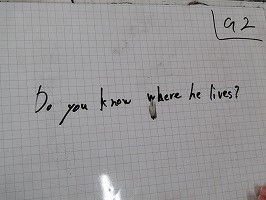 92
Do you know where he lives?